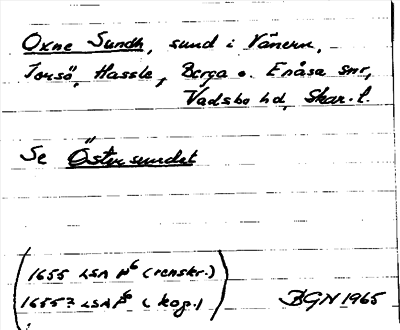 Oxne Sundh, sund i Vänern,
Torsö, Hassle, Berga o. Enåsa snr,
Vadsbo hd, Skar. l.
Se Östersundet
(1655 LSA P6 (renskr.)
1655? LSA P6 (kog.))
BGN 1965